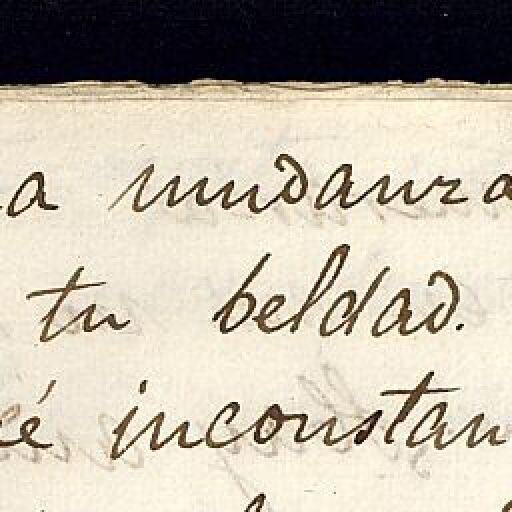 a mudanza
tu beldad.
é inconstan